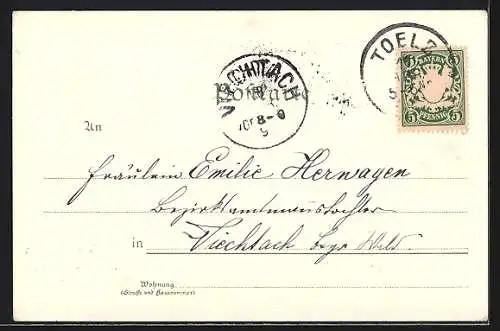 TOELZ
BAYERN
5 5
PFENNIG
VIECHTACH
8-9
Postkarte
An
Fräulein Emilie Herwagen
Bezirksamtmannstochter
in Viechtach bayr. Wald.
Wohnung
(Straße und Hausnummer)